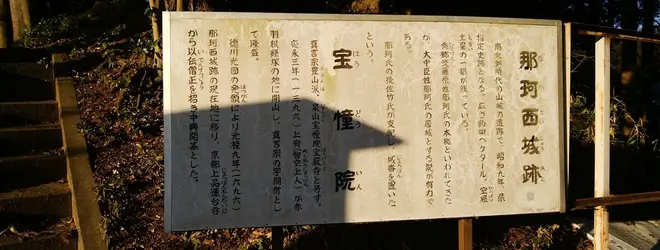 那珂西城跡
南北朝時代の山城の遺跡で、昭和九年、県
指定史跡となる。広さ約四ヘクタール。空堀
土塁の一部が残っている。
が大中臣姓那珂氏の居城とする説が有力で
ある。
那珂氏の後佐竹氏が支配し、城番を置いた
という。
宝幢院
ほうどういん
真言宗豊山派、
応永三年(一三九六)上宥
羽根経塚の地に開山し、真言宗の学問所とし
て隆盛。
徳川光圀の発願により元禄九年(一六九六)
那珂西城跡の現在地に移り、京都上品蓮台寺
から以伝僧正を招き中興開基とした。